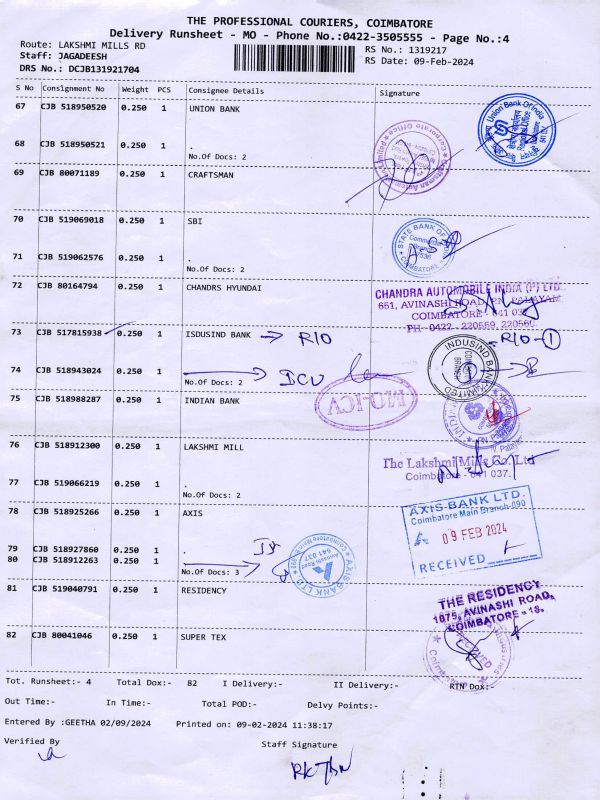 THE PROFESSIONAL COURIERS, COIMBATORE
Delivery Runsheet - MO - Phone No.:0422-3505555 - Page No.:4
Route: LAKSHMI MILLS RD
RS No.: 1319217
Staff: JAGADEESH
RS Date: 09-Feb-2024
DRS No.: DCJB131921704
S No Consignment No Weight PCS Consignee Details Signature
67 CJB 518950520 0.250 1 UNION BANK
Union Bank Of India
68 CJB 518950521 0.250 1 .
No.Of Docs: 2
Corporate Office
69 CJB 80071189 0.250 1 CRAFTSMAN
70 CJB 519069018 0.250 1 SBI
STATE BANK OF
COIMBATORE
71 CJB 519062576 0.250 1 .
No.Of Docs: 2
72 CJB 80164794 0.250 1 CHANDRS HYUNDAI
CHANDRA AUTOMOBILE INDIA (P) LTD
651, AVINASHI ROAD, P.N. PALAYAM,
COIMBATORE - 641 037.
PH: 0422 - 220559, 220560
73 CJB 517815938 0.250 1 ISDUSIND BANK → RIO
RIO - 1
INDUSIND BANK LIMITED
74 CJB 518943024 0.250 1
No.Of Docs: 2
75 CJB 518988287 0.250 1 INDIAN BANK
76 CJB 518912300 0.250 1 LAKSHMI MILL
The Lakshmi Mills Co. Ltd
Coimbatore - 641 037.
77 CJB 519066219 0.250 1 .
No.Of Docs: 2
78 CJB 518925266 0.250 1 AXIS
AXIS BANK LTD.
Coimbatore Main Branch-090
09 FEB 2024
RECEIVED
79 CJB 518927860 0.250 1 .
80 CJB 518912263 0.250 1
No.Of Docs: 3
AXIS BANK LTD
Avinashi Road
641 037
81 CJB 519040791 0.250 1 RESIDENCY
THE RESIDENCY
1076, AVINASHI ROAD,
COIMBATORE - 18.
82 CJB 80041046 0.250 1 SUPER TEX
Tot. Runsheet:- 4 Total Dox:- 82 I Delivery:- II Delivery:- RTN Dox:-
Out Time:- In Time:- Total POD:- Delvy Points:-
Entered By :GEETHA 02/09/2024 Printed on: 09-02-2024 11:38:17
Verified By Staff Signature